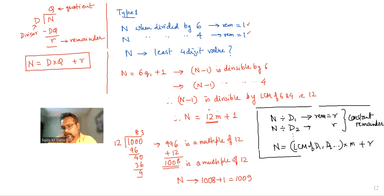 Q → quotient
D⟌N
Divisor
-DQ
r → remainder
N = D×Q + r
Type 1
N when divided by 6 → rem = 1
N " " " 4 → rem = 1
N → least 4 digit value ?
N = 6q₁ + 1 → (N-1) is divisible by 6
→ (N-1) " " " 4
∴ (N-1) is divisible by LCM of 6 & 4 ie 12
∴ N = 12m + 1
83
12⟌1000
96
40
36
9
996 is a multiple of 12
+12
1008 is a multiple of 12
N → 1008+1 = 1009
N ÷ D₁ → rem = r
N ÷ D₂ → r
constant remainder
N = (LCM of D₁, D₂ ..) × m + r